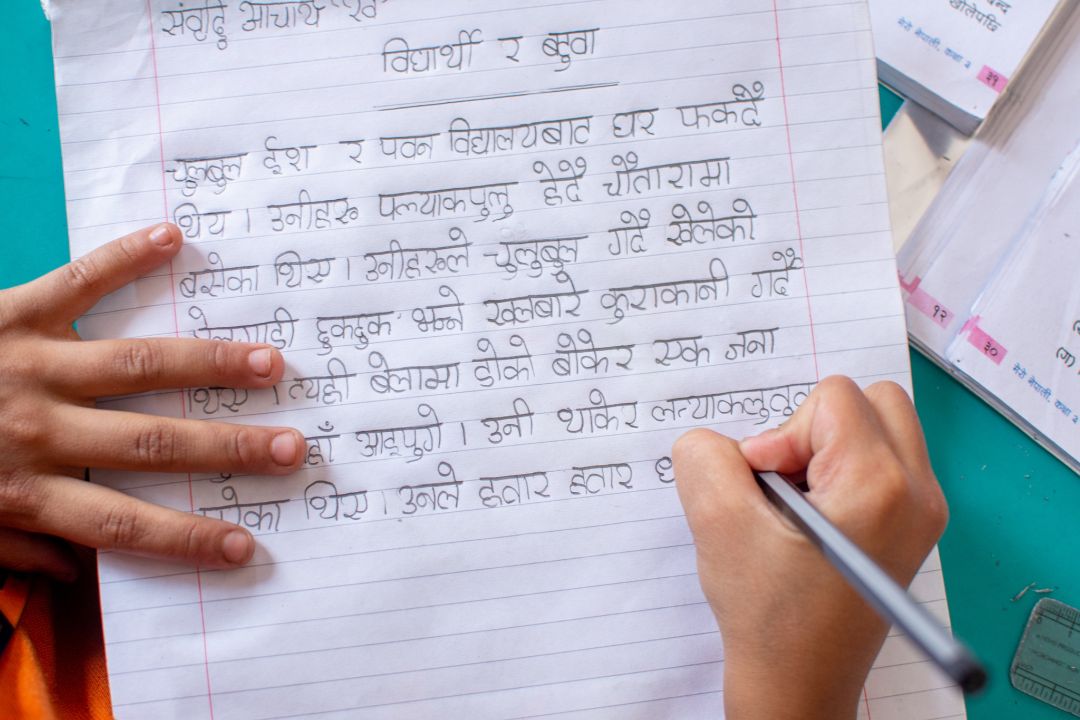 संवृद्धि आचार्य
विद्यार्थी र बुवा
चुलबुल ईश र पवन विद्यालयबाट घर फर्कदै
थिए । उनीहरू पल्याकपुलु हेर्दै चौतारामा
बसेका थिए । उनीहरूले चुलुबुल गर्दै खेलेको
दुकदुक भन्ने खेलबारे कुराकानी गर्दै
थिए । त्यही बेलामा डोको बोकेर एक जना
आइपुगे । उनी थाकेर लत्याकलुतुक
थिए । उनले हतार हतार
खोलेपछि
मेरो नेपाली, कक्षा २
२९
१२
३०
मेरो नेपाली, कक्षा २